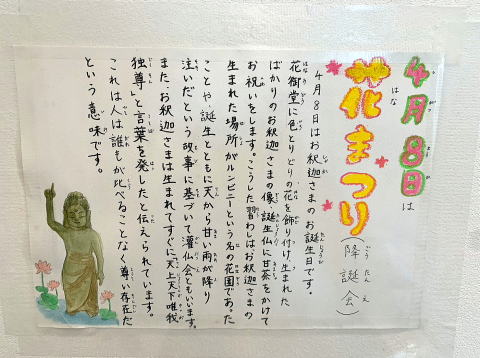 4月8日は
花まつり(降誕会)
4月8日はお釈迦さまのお誕生日です。
花御堂に色とりどりの花を飾り付け、生まれた
ばかりのお釈迦さまの像、誕生仏に甘茶をかけて
お祝いをします。こうした習わしはお釈迦さまの
生まれた場所がルンビニーという名の花園であった
ことや、誕生とともに天から甘い雨が降り
注いだという故事に基づいて灌仏会ともいいます。
また、お釈迦さまは生まれてすぐに「天上天下唯我
独尊」と言葉を発したと伝えられています。
これは人は誰もが比べることなく尊い存在だ
という意味です。